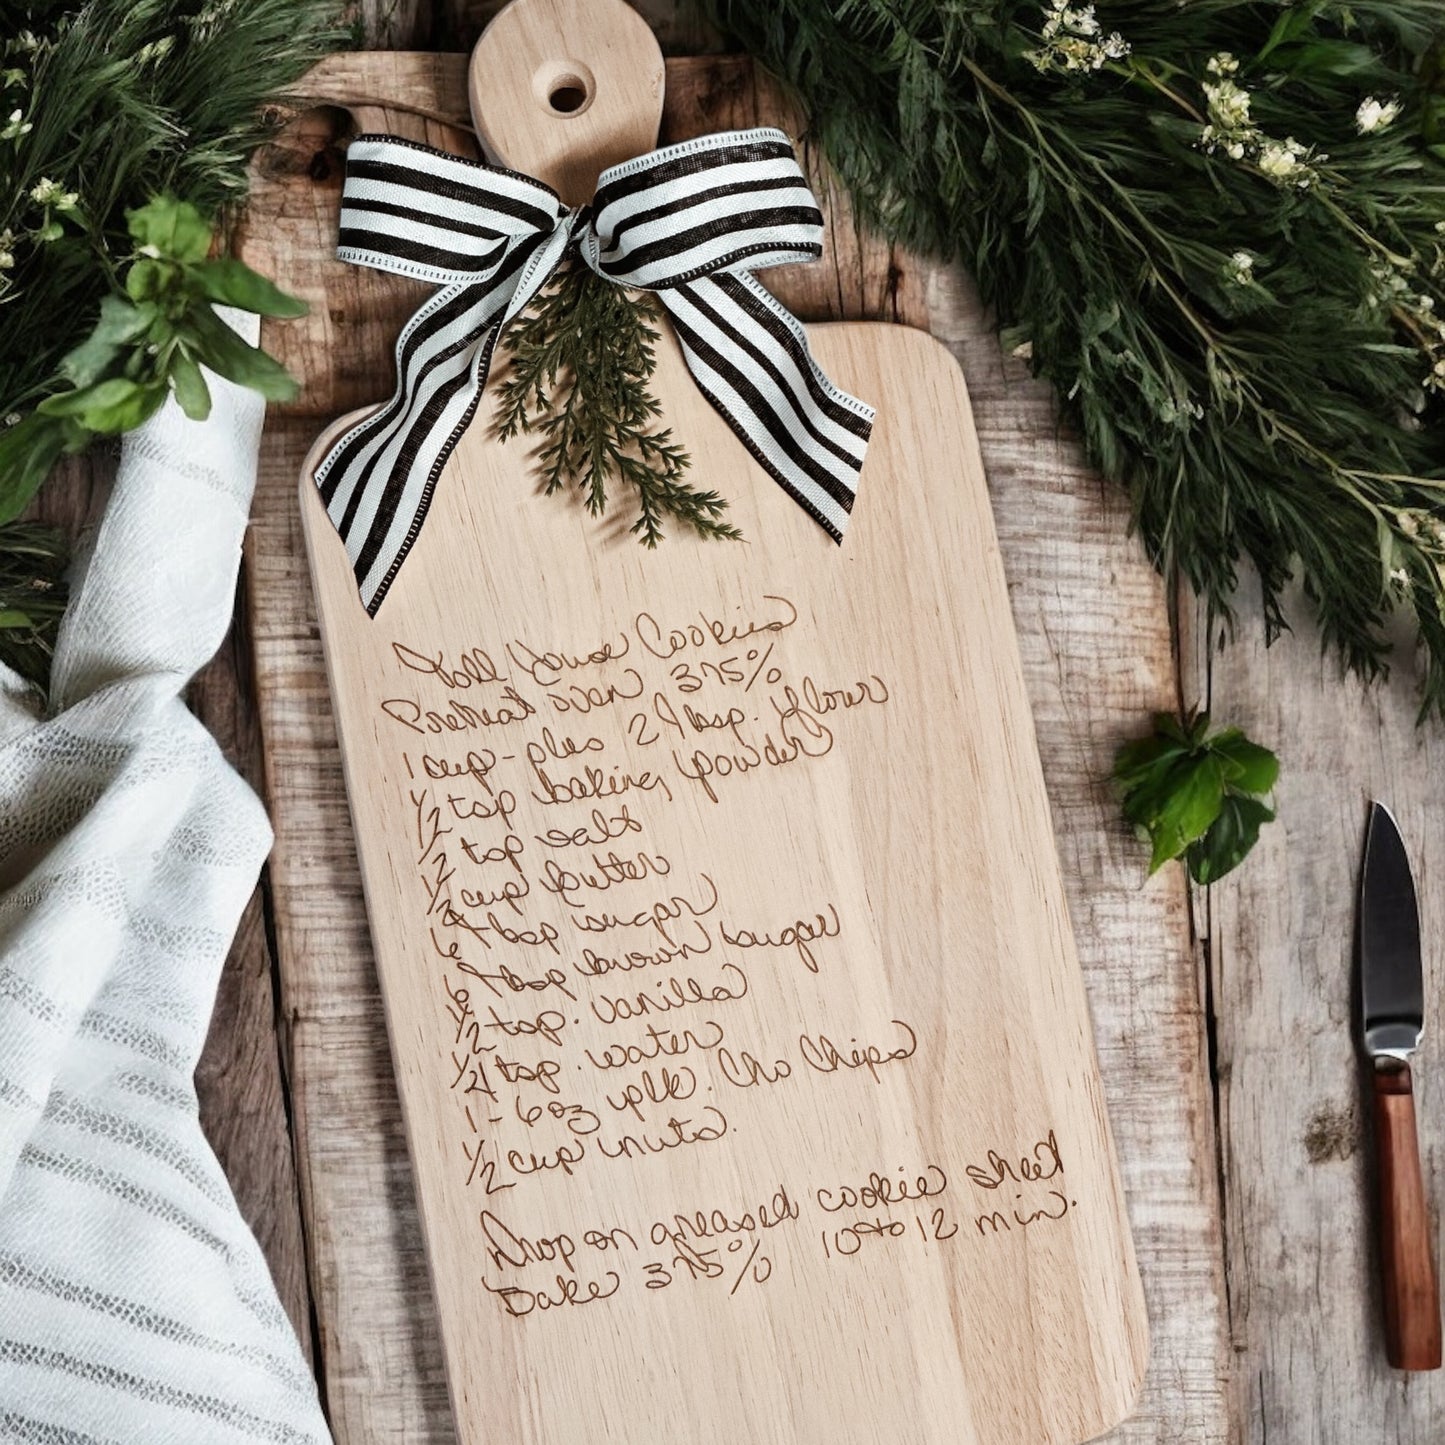 Toll House Cookies
Preheat oven 375%
1 cup - plus 2 Tbsp. flour
1/2 tsp baking powder
1/2 tsp salt
1/2 cup butter
6 Tbsp sugar
6 Tbsp brown sugar
1/2 tsp. vanilla
1/4 tsp. water
1 - 6 oz pk. Cho Chips
1/2 cup nuts.
Drop on greased cookie sheet
Bake 375% 10 to 12 min.